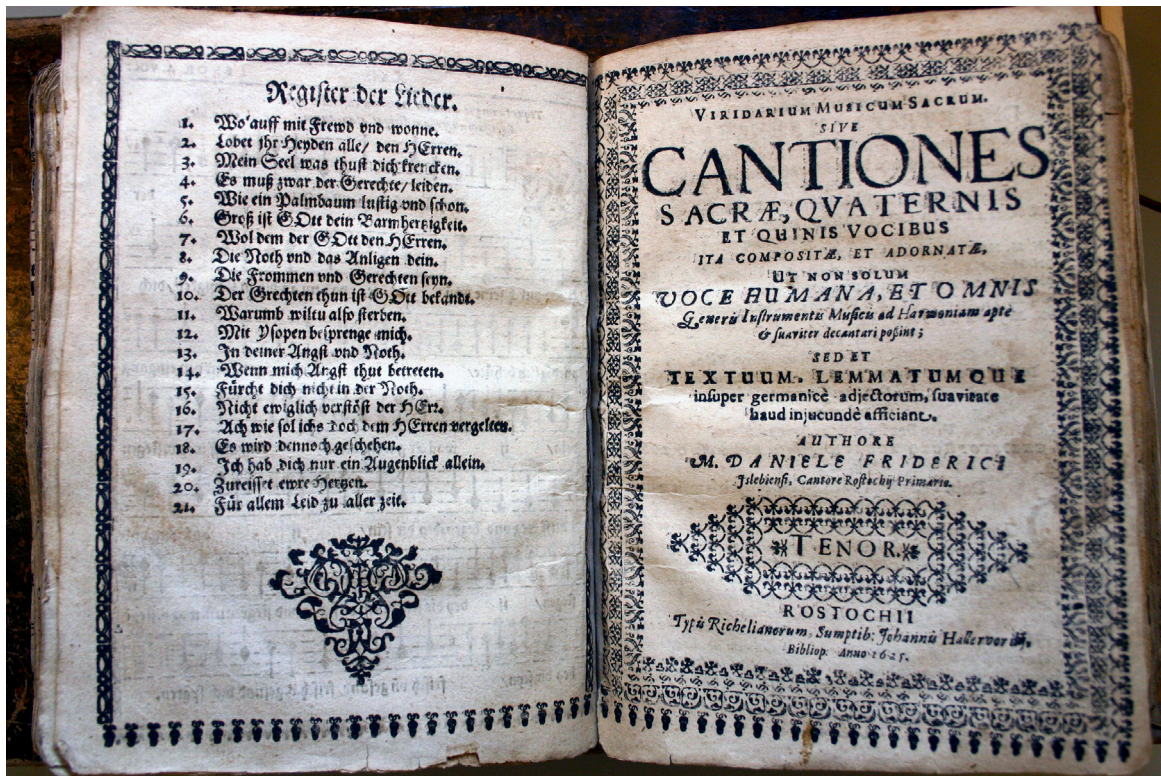 Register der Lieder.
1. Wo'auff mit Frewd vnd wonne.
2. Lobet jhr Heyden alle/ den HErren.
3. Mein Seel was thust dich krencken.
4. Es muß zwar der Gerechte/ leiden.
5. Wie ein Palmbaum lustig vnd schon.
6. Groß ist GOtt dein Barmhertzigkeit.
7. Wol dem der GOtt den HErren.
8. Die Noth vnd das Anligen dein.
9. Die Frommen vnd Gerechten seyn.
10. Der Grechten thun ist GOtt bekandt.
11. Warumb wiltu also sterben.
12. Mit Ysopen besprenge mich.
13. In deiner Angst vnd Noth.
14. Wenn mich Angst thut betreten.
15. Fürcht dich nicht in der Noth.
16. Nicht ewiglich verstöst der HErr.
17. Ach wie sol ichs doch dem HErren vergelten.
18. Es wird dennoch geschehen.
19. Ich hab dich nur ein Augenblick allein.
20. Zureisset ewre Hertzen.
21. Für allem Leid zu aller zeit.
VIRIDARIUM MUSICUM SACRUM.
SIVE
CANTIONES
SACRÆ, QVATERNIS
ET QUINIS VOCIBUS
ITA COMPOSITÆ, ET ADORNATÆ,
UT NON SOLUM
VOCE HUMANA, ET OMNIS
Generis Instrumentis Musicis ad Harmoniam aptè
& suaviter decantari poßint;
SED ET
TEXTUUM, LEMMATUMQUE
insuper germanicè adjectorum, suavitate
haud injucundè afficiant.
AUTHORE
M. DANIELE FRIDERICI
Islebiensi, Cantore Rostochij Primario.
TENOR
ROSTOCHII
Typis Richelianorum, Sumptib: Johannis Hallervordij,
Bibliop. Anno 1625.